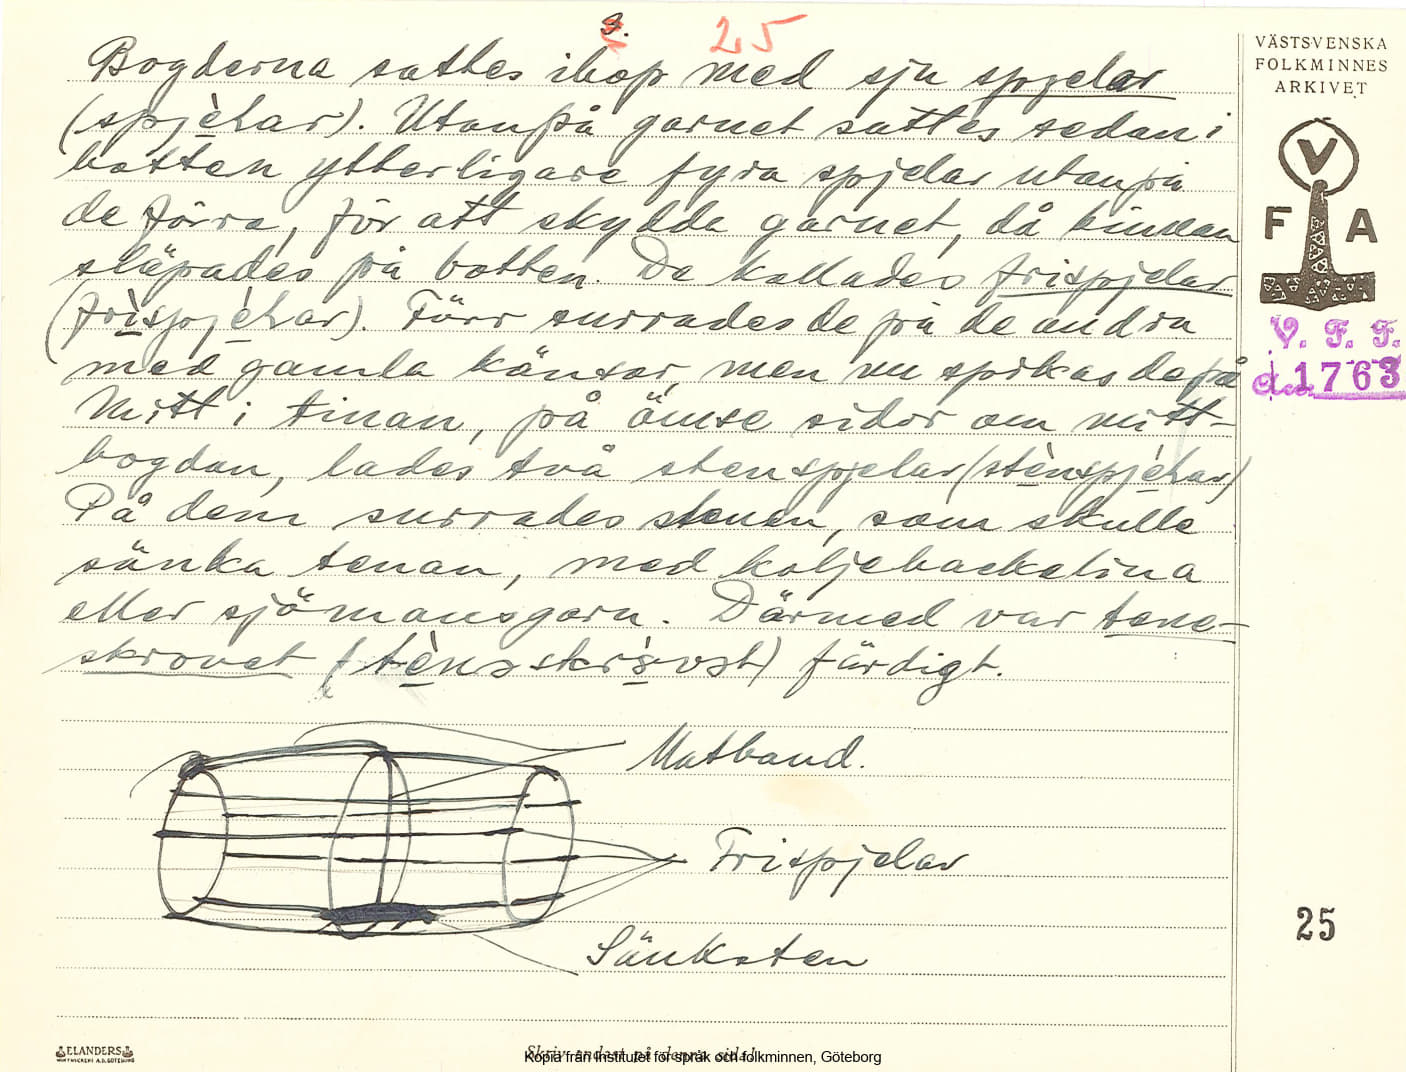 3.
25
Bogderna sattes ihop med sju spjelar
(spjèlar). Utanpå garnet sattes sedan i
botten ytterligare fyra spjelar utanpå
de förra, för att skydda garnet, då tinan
släpades på botten. De kallades frispjelar
(frìspjèlar). Förr surrades de på de andra
med gamla känsor, men nu spikas de på
Mitt i tinan, på ömse sidor om mitt-
bogdan, lades två stenspjelar (stènspjèlar)
På dem surrades stenen, som skulle
sänka tenan, med koljebackelina
eller sjömansgarn. Därmed var tene-
skrovet färdigt.
Matband.
Frispjelar
Sänksten
VÄSTSVENSKA
FOLKMINNES
ARKIVET
V
F A
V. F. F.
1763
25
ELANDERS
Kopia från Institutet för språk och folkminnen, Göteborg